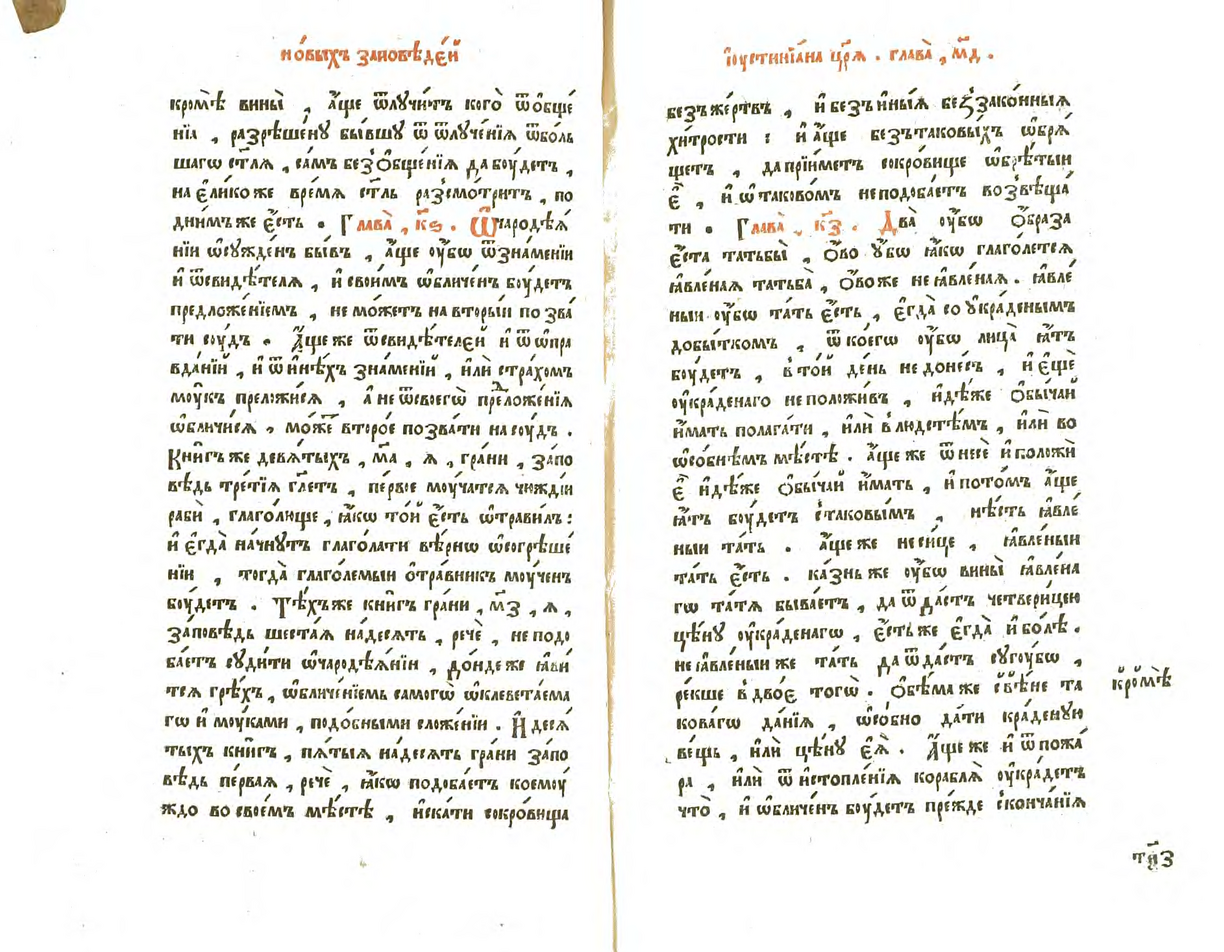 но́выхъ за́повѣде́й
кромѣ̀ вины̀ , а҆́ще ѿлꙋчи́тъ кого̀ ѿо́бще́
нїѧ , разрѣше́нꙋ бы́вшꙋ ѿ ѿлꙋче́нїѧ ѿбо́ль
шагѡ ст҃лѧ , са́мъ без̾ о҆бще́нїѧ да бꙋ́детъ ,
на є҆ли́ко же вре́мѧ ст҃ль раз̾смо́тритъ , по
дни́мъ же є҆́сть . Глава̀ , к҃ѕ . Ѿ чародѣ́ѧ
нїи ѡ҆сꙋжде́нъ бы́въ , а҆́ще ᲂу҆́бѡ ѿзна́менїи
и҆ ѿсвидѣ́телѧ , и҆ свои́мъ ѡ҆бличе́нъ бꙋ́детъ
предложе́нїемъ , не мо́жетъ на вторы́и позва́
ти сꙋ́дъ . А҆́ще же ѿсвидѣ́теле́й и҆ ѿ ѡ҆пра
вда́нїй , и҆ ѿ и҆нѣ́хъ зна́менїй , и҆лѝ стра́хомъ
мꙋ́къ преложи́сѧ , а҆ не ѿсвоегѡ̀ преⷣложе́нїѧ
ѡ҆бличи́сѧ , мо́жеⷮ второ́е позва́ти на сꙋ́дъ .
Кни́гъ же девѧ́тыхъ , м҃а , ѧ , гра́ни , за́по
вѣдь тре́тїѧ гл҃етъ , пе́рвѣе мꙋ́чатсѧ чю́ждїи
рабѝ , глаго́люще , ꙗ҆́кѡ то́й є҆́сть ѿтрави́лъ :
и҆ є҆гда̀ начнꙋ́тъ глаго́лати вѣ́рнѡ ѡ҆согрѣше́
нїи , тогда̀ глаго́лемыи ѻ҆тра́вникъ мꙋ́ченъ
бꙋ́детъ . Тѣ́хъ же кни́гъ гра́ни , м҃з , ѧ ,
за́повѣдь шеста́ѧ на́десѧть , речѐ , не подо
ба́етъ сꙋди́ти ѡ҆чародѣ́ѧнїи , до́нде же ꙗ҆ви́
тсѧ грѣ́хъ , ѡ҆бличе́нїемь самогѡ̀ ѡ҆клевета́ема
гѡ и҆ мꙋ́ками , подо́бными сложе́нїи . И҆ десѧ́
тыхъ кни́гъ , пѧ́тыѧ на́десѧть гра́ни за́по
вѣдь пе́рваѧ , речѐ , ꙗ҆́кѡ подоба́етъ коемꙋ́
ждо во свое́мъ мѣ́стѣ , и҆ска́ти сокро́вища
і҆ꙋстинїа́на цр҃ѧ . глава̀ , м҃д .
безъ же́ртвъ , и҆ безъ и҆ны́ѧ беззако́нныѧ
хи́трости : и҆ а҆́ще безъ таковы́хъ ѡ҆брѧ́
щетъ , да прїи́метъ сокро́вище ѡ҆брѣ́тыи
є҆̀ , и҆ ѡ҆ таково́мъ не подоба́етъ возвѣща́
ти . Глава̀ , к҃з . Два̀ ᲂу҆́бѡ ѻ҆́браза
є҆́ста татьбы̀ , ѻ҆́во ᲂу҆́бѡ ꙗ҆́кѡ глаго́летсѧ
ꙗ҆вле́наѧ татьба̀ , ѻ҆́вое же не ꙗ҆вле́наѧ . ꙗ҆вле́
ныи ᲂу҆́бѡ та́ть є҆́сть , є҆гда̀ со ᲂу҆кра́денымъ
добы́ткомъ , ѿ коегѡ ᲂу҆́бѡ лица̀ ꙗ҆́тъ
бꙋ́детъ , в то́й де́нь не доне́съ , и҆ є҆щѐ
ᲂу҆кра́денаго не положи́въ , и҆дѣ́же ѻ҆бы́чай
и҆́мать полага́ти , и҆лѝ в лю́дстѣ́мъ , и҆лѝ во
ѡ҆со́бнѣмъ мѣ́стѣ . а҆́ще же ѿнесѐ и҆ положѝ
є҆̀ и҆дѣ́же ѻ҆бы́чай и҆́мать , и҆ пото́мъ а҆́ще
ꙗ҆́тъ бꙋ́детъ с таковы́мъ , нѣ́сть ꙗ҆вле́
ныи та́ть . а҆́ще же не си́це , ꙗ҆вле́ныи
та́ть є҆́сть . ка́знь же ᲂу҆́бѡ вины̀ ꙗ҆вле́на
гѡ та́тѧ быва́етъ , да ѿда́стъ четвери́цею
цѣ́нꙋ ᲂу҆кра́денагѡ , є҆́сть же є҆гда̀ и҆ бо́лѣ .
не ꙗ҆вле́ныи же та́ть да ѿда́стъ сꙋгꙋ́бѡ ,
ре́кше в дво́е тогѡ̀ . ѻ҆бѣ́ма же є҆вѣ́не та
кова́гѡ да́нїѧ , ѡ҆со́бно да́ти кра́денꙋю
ве́щь , и҆лѝ цѣ́нꙋ є҆ѧ̀ . А҆́ще же и҆ ѿ пожа́
ра , и҆лѝ ѿ и҆стопле́нїѧ кораблѧ̀ ᲂу҆кра́детъ
что̀ , и҆ ѡ҆бличе́нъ бꙋ́детъ пре́жде сконча́нїѧ
кромѣ̀